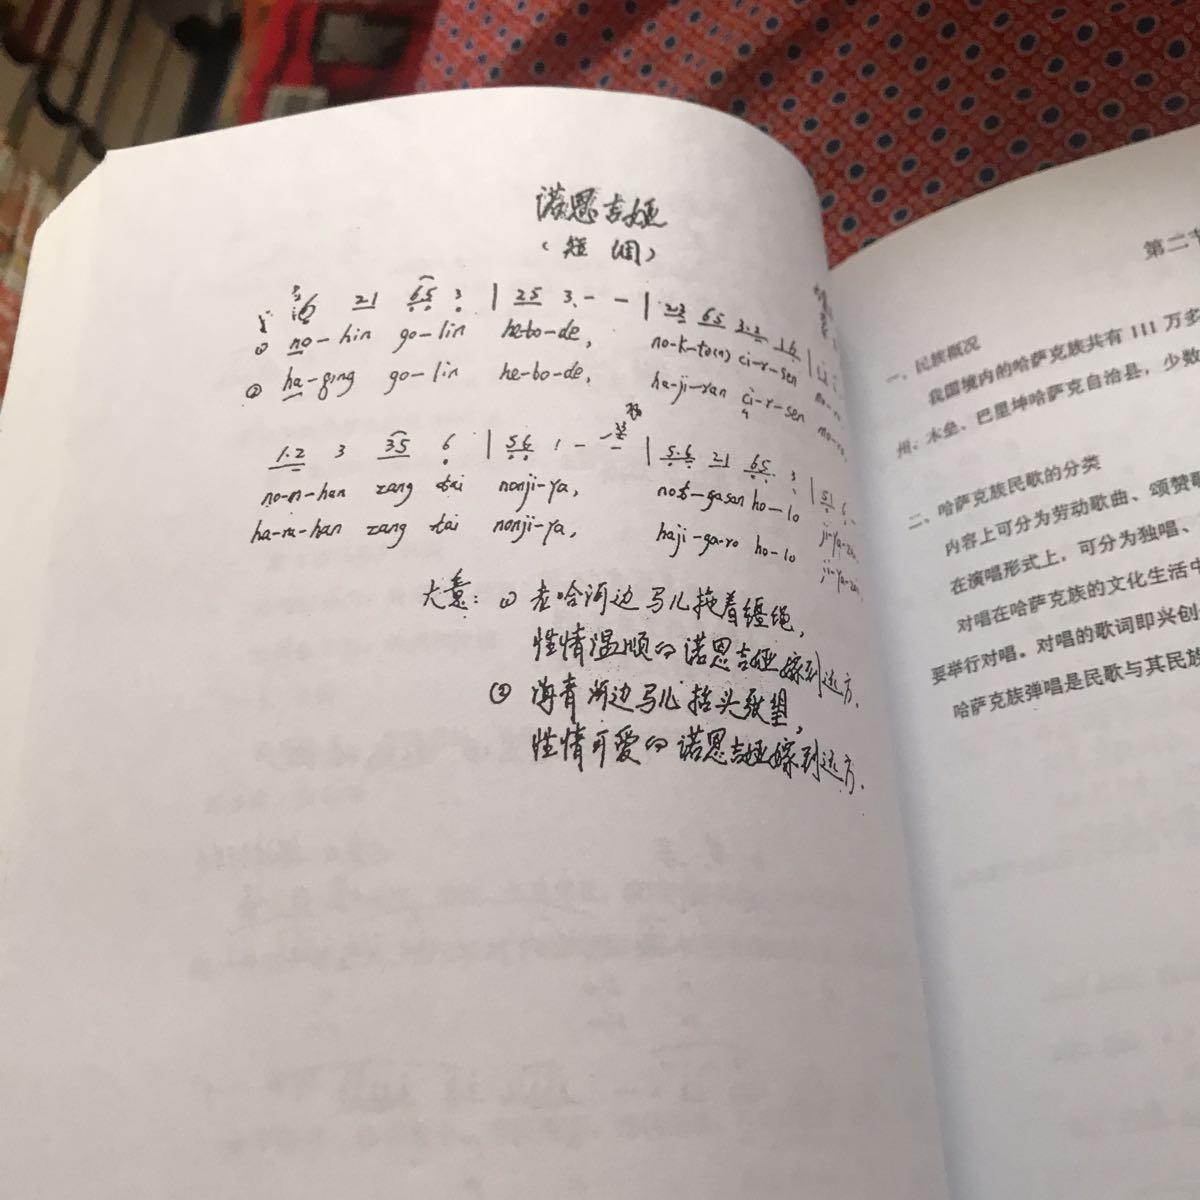 诺恩吉娅
（短调）
i6 21 65 3 | 25 3 - - | 23 65 3.2 16 |
① no-hin go-lin he-bo-de, no-k-to(n) ci-r-sen
② ha-ging go-lin he-bo-de, ha-ji-ran ci-r-sen
1.2 3 35 6 | 56 1 - - | 5.6 21 65 3 | 51 6 -
no-n-han zang tai nonji-ya, not-gasan ho-lo ji-ya-
ha-ra-han zang tai nonji-ya, haji-ga-ro ho-lo ji-ya-
大意：① 老哈河边马儿拖着缰绳，
性情温顺的诺恩吉娅嫁到远方.
② 海青河边马儿抬头张望，
性情可爱的诺恩吉娅嫁到远方.
第二节
一、民族概况
我国境内的哈萨克族共有 111 万多
州、木垒、巴里坤哈萨克自治县，少数
二、哈萨克族民歌的分类
内容上可分为劳动歌曲、颂赞歌
在演唱形式上，可分为独唱、
对唱在哈萨克族的文化生活中
要举行对唱。对唱的歌词即兴创
哈萨克族弹唱是民歌与其民族